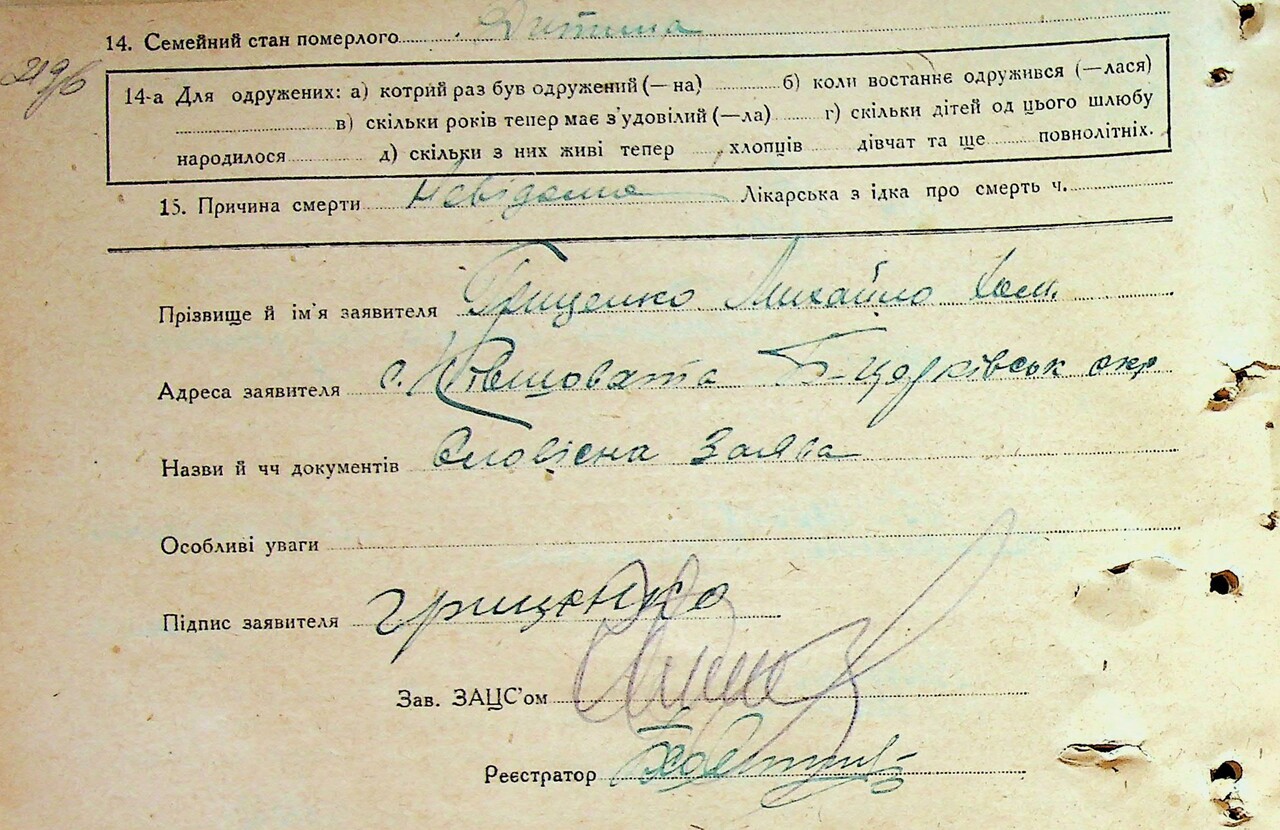 14. Семейний стан померлого Дитина
219/6
14-а Для одружених: а) котрий раз був одружений (—на) б) коли востаннє одружився (—лася)
в) скільки років тепер має з'удовілий (—ла) г) скільки дітей од цього шлюбу
народилося д) скільки з них живі тепер , хлопців дівчат та ще повнолітніх.
15. Причина смерти Невідома Лікарська з ідка про смерть ч.
Прізвище й ім'я заявителя Гриценко Михайло
Адреса заявителя с. Ківшовата Б-Церківськ окр
Назви й чч документів Словісна Заява
Особливі уваги
Підпис заявителя Гриценко
Зав. ЗАЦС'ом
Реєстратор